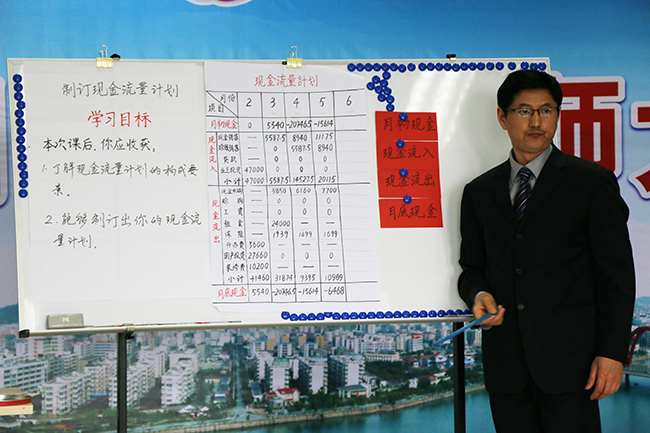 制订现金流量计划
学习目标
本次课后，你应收获。
1.了解现金流量计划的构成要
素。
2.能够制订出你的现金流
量计划。
现金流量计划
月份 2 3 4 5 6
项目
月初现金 0 5540 -20746.5 -15614
现金流入
现金销售 — 5587.5 8940 11175
赊销 — — 5587.5 8940
贷款 — — — —
业主投资 47000 — — —
小计 47000 5587.5 14527.5 20115
现金流出
3850 6160 7700
赊购 — — — —
工资 — — — —
租金 — 24000 — —
保险 — 1939 1699 1699
开办费 3600 — — —
27660 — — —
装修费 10200 — — —
小计 41460 31874 9395 10969
月底现金 5540 -20746.5 -15614 -6468
月初现金
现金流入
现金流出
月底现金
师大